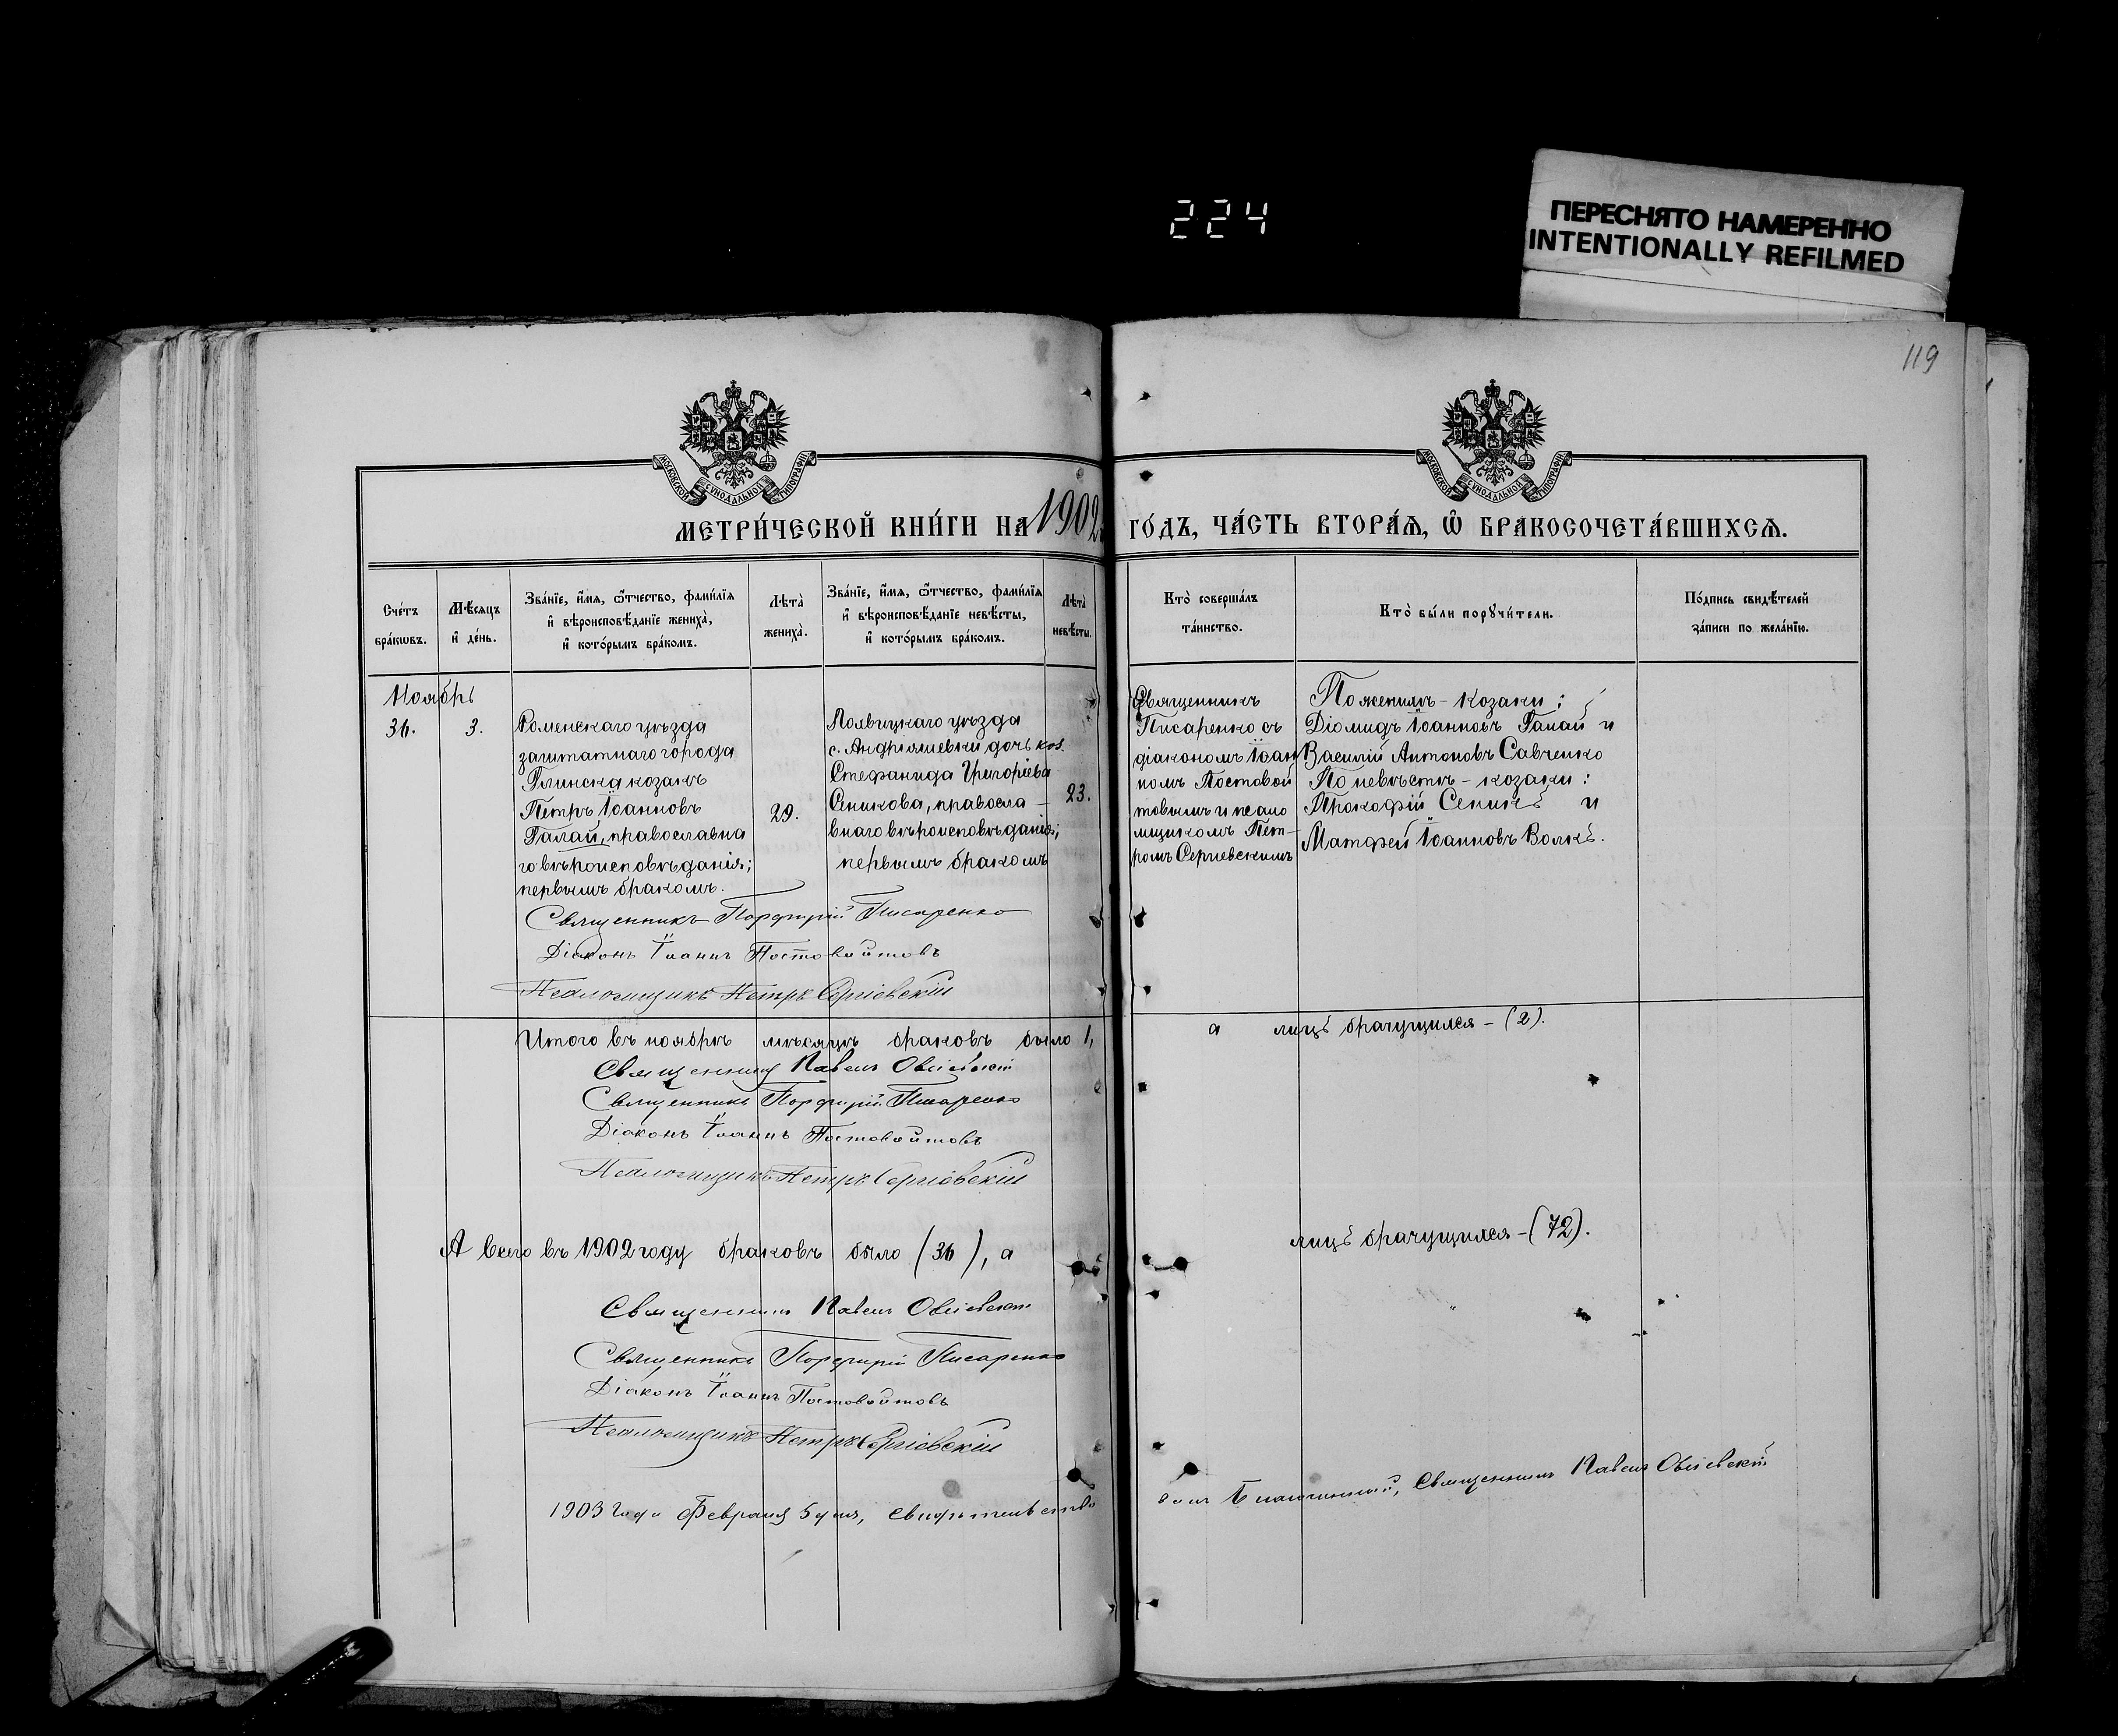 224
ПЕРЕСНЯТО НАМЕРЕННО
INTENTIONALLY REFILMED
119
МОСКОВСКОЙ СѴНОДАЛЬНОЙ ТИПОГРАФІИ
МОСКОВСКОЙ СѴНОДАЛЬНОЙ ТИПОГРАФІИ
МЕТРИ́ЧЕСКОЙ КНИ́ГИ НА 1902 ГО́ДЪ, ЧА́СТЬ ВТОРА́Ѧ, Ѡ҆ БРАКОСОЧЕТА́ВШИХСѦ.
Сче́тъ
бра́кѡвъ.
Мѣ́сяцъ
и҆ де́нь.
Зва́нїе, и҆́мя, ѻ҆́тчество, фами́лїя
и҆ вѣроисповѣ́данїе жениха̀,
и҆ кото́рымъ бра́комъ.
Лѣта̀
жениха̀.
Зва́нїе, и҆́мя, ѻ҆́тчество, фами́лїя
и҆ вѣроисповѣ́данїе невѣ́сты,
и҆ кото́рымъ бра́комъ.
Лѣта̀
невѣ́сты.
Кто̀ соверша́лъ
та́инство.
Кто̀ бы́ли порꙋчи́тели.
По́дпись свидѣ́телей
за́писи по жела́нїю.
Ноябрь
36.
3.
Роменскаго уѣзда
заштатнаго города
Глинска козакъ
Петръ Іоанновъ
Галай, православна
го вѣроисповѣданія;
первымъ бракомъ.
29.
Лохвицкаго уѣзда
с. Андріяшевки дочь коз.
Стефанида Григоріева
православ-
внаго вѣроисповѣданія;
первымъ бракомъ
23.
Священникъ
Писаренко съ
діакономъ Іоан
номъ Постовой
товымъ и псало
мщикомъ Пет-
ромъ Сергіевскимъ
По женихѣ - козаки:
Діомидъ Іоанновъ Галай и
Василій Антоновъ Савченко
По невѣстѣ - козаки:
Прокофій и
Матфей Іоанновъ Волкъ.
Священникъ Порфирій Писаренко
Діаконъ Іоаннъ Постовойтовъ
Псаломщикъ Петръ Сергіевскій
Итого въ ноябрѣ мѣсяцѣ браковъ было 1, а лицъ брачущихся - (2).
Священникъ Павелъ
Священникъ Порфирій Писаренко
Діаконъ Іоаннъ Постовойтовъ
Псаломщикъ Петръ Сергіевскій
А всего въ 1902 году браковъ было (36), а лицъ брачущихся - (72).
Священникъ Павелъ
Священникъ Порфирій Писаренко
Діаконъ Іоаннъ Постовойтовъ
Псаломщикъ Петръ Сергіевскій
1903 года Февраля 5 дня, свидѣтельство валъ Благочинный, Священникъ Павелъ